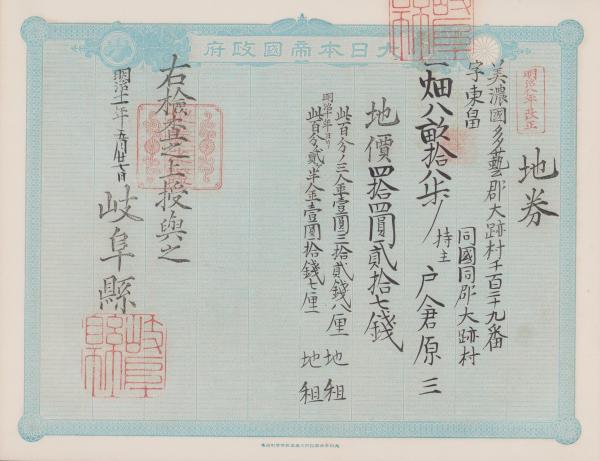 大日本帝國政府
明治八年改正
地券
美濃國多藝郡大跡村千百三十九番
字東畠
同國同郡大跡村
一畑八畝拾八歩
持主 戸倉原三
地價四拾四圓貳拾七錢
此百分ノ三金壹圓三拾貳錢八厘 地租
明治十年ヨリ
此百分ノ貳半金壹圓拾錢七厘 地租
右檢査之上授與之
明治十一年
岐阜縣